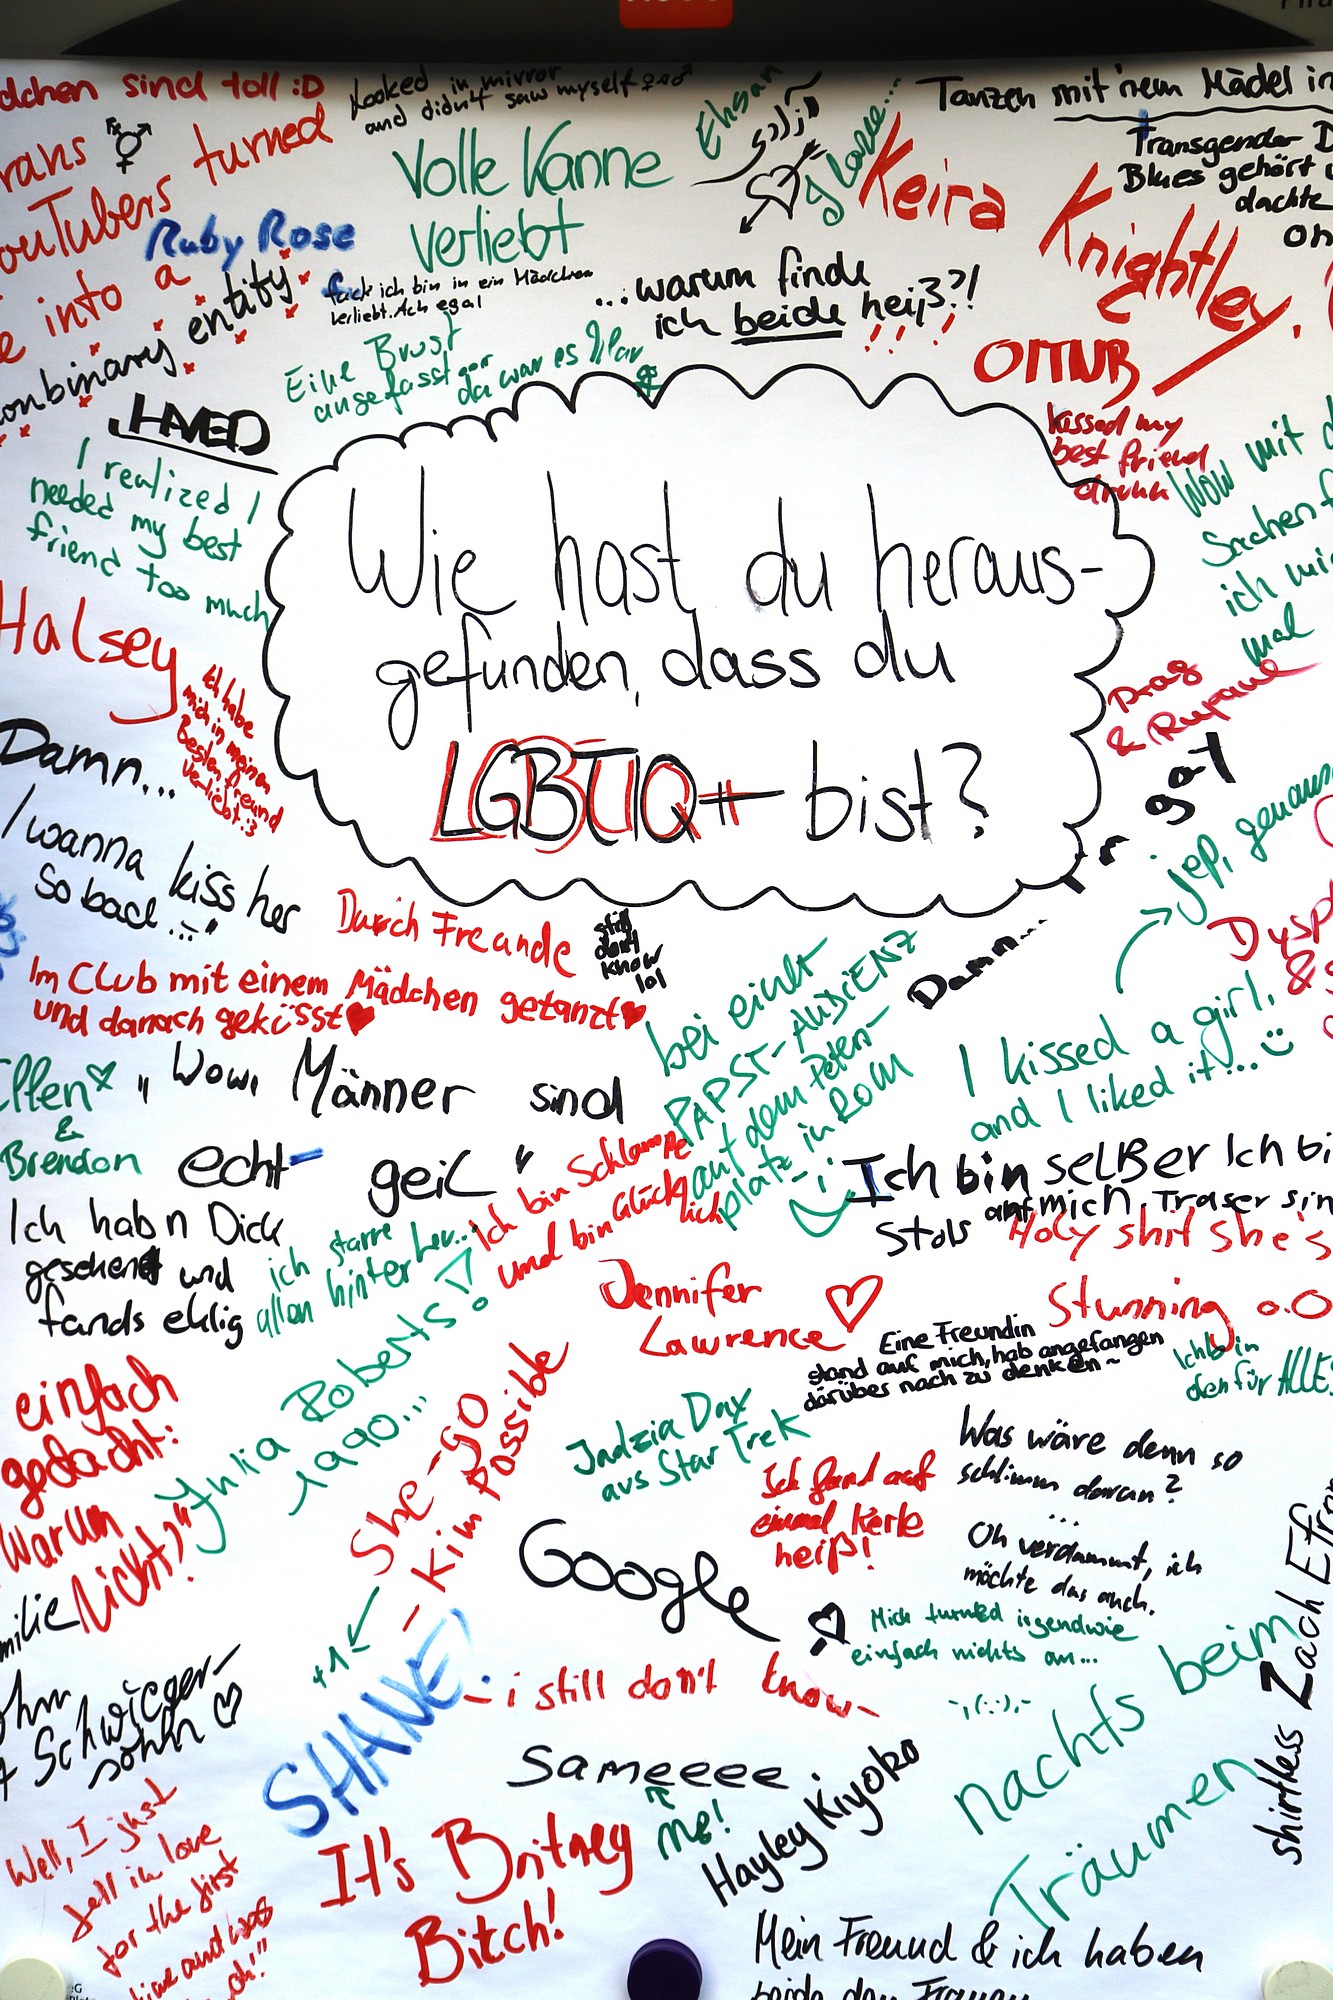 dchen sind toll :D
Looked in mirror
and didn't saw myself
Ehsan
I love...
Tanzen mit 'nem Mädel in
rans
YouTubers turned
e into a
nonbinary entity
Volle Kanne
verliebt
Keira
Knightley.
Transgender D
Blues gehört
dachte
Ruby Rose
fuck ich bin in ein Mädchen
verliebt. Ach egal
...warum finde
ich beide heiß?!
Eine Brust
angefasst
da war es klar
OITNB
kissed my
best friend
drunk
Wow mit d
Sachen f
ich mi
mal
I realized I
needed my best
friend too much
Wie hast du heraus-
gefunden, dass du
LGBTIQ+ bist?
Halsey
Ich habe
mich in meinen
Besten freund
verliebt :3
Drag
& Rupaul
Damn...
I wanna kiss her
so bad..."
Durch Freunde
still
don't
know
lol
Damn...
I r gay
jep, genau
Im Club mit einem Mädchen getanzt
und danach geküsst
bei einer
PAPST-AUDIENZ
auf dem Peters-
platz in ROM
I kissed a girl,
and I liked it...
Dysp
&
Ellen
&
Brendon
"Wow, Männer sind
echt geil"
Ich bin Schlampe
und bin Glück
lich
Ich bin selBer Ich bi
Stols auf mich, Traser sin
Holy shit she's
Stunning o.O
Ich hab n Dick
gesehen und
fands eklig
ich starre
allen hinterher...
Jennifer
Lawrence
Eine Freundin
stand auf mich, hab angefangen
darüber nach zu denken~
Ich bin
offen für ALLES
einfach
gedacht:
"Warum
Nicht?"
Julia Roberts!
1990...
She-go
- Kim Possible
+1
Jadzia Dax
aus Star Trek
Ich fand auf
einmal Kerle
heiß!
Was wäre denn so
schlimm daran?
...
Oh verdammt, ich
möchte das auch.
Google
Mich turned irgendwie
einfach nichts an...
milie
Schwieger-
sohn
SHANE!
- i still don't know-
Sameeee
me!
Hayley Kiyoko
nachts beim
Träumen
shirtless Zach Efron
Well, I just
fell in love
for the first
time and was
"oh"
It's Britney
Bitch!
Mein Freund & ich haben
beide den